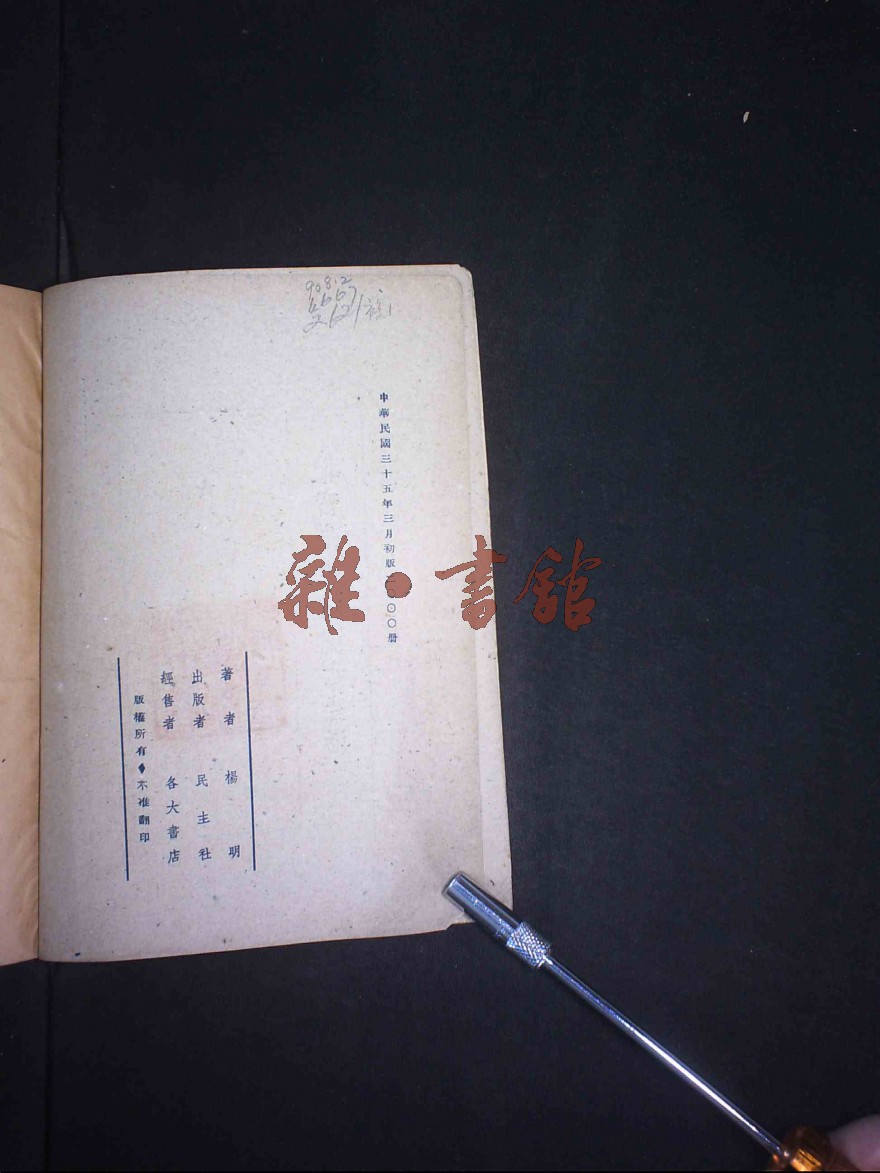 908.2
4667
中華民國三十五年三月初版二〇〇〇册
雜·書館
著者 楊明
出版者 民主社
經售者 各大書店
版權所有♦不准翻印